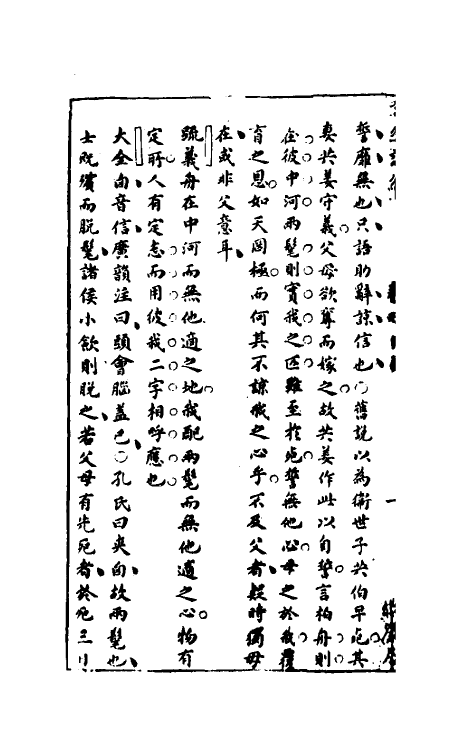 誓靡無也只語助辭諒信也○舊說以為衛世子共伯早死其
妻共姜守義父母欲奪而嫁之故共姜作此以自誓言柏舟則
在彼中河兩髦則實我之匹雖至於死誓無他心母之於我覆
育之恩如天罔極而何其不諒我之心乎不及父者疑時獨母
在或非父意耳
疏義舟在中河而無他適之地我配兩髦而無他適之心物有
定所人有定志而用彼我二字相呼應也
大全囟音信廣韻注曰頭會腦蓋也○孔氏曰夾囟故兩髦也
士既殯而脫髦諸侯小斂則脫之若父母有先死者於死三日